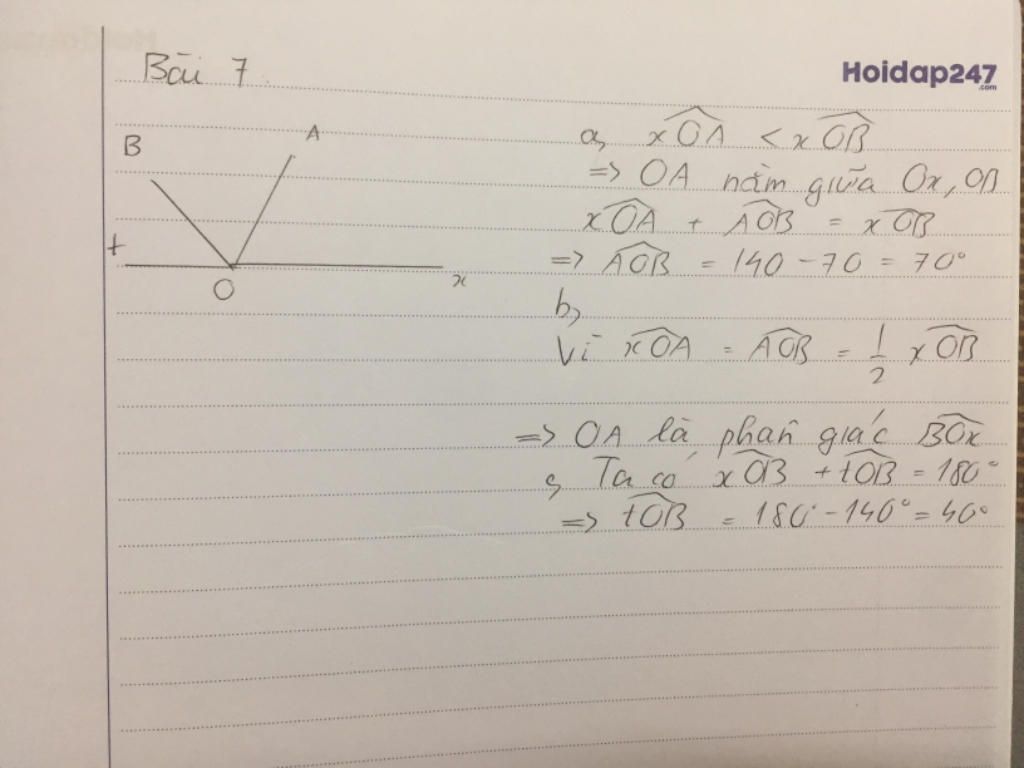 Bài 7
Hoidap247
.com
B
A
t
O
x
a, $\widehat{xOA}$ < $\widehat{xOB}$
=> OA nằm giữa Ox, OB
$\widehat{xOA}$ + $\widehat{AOB}$ = $\widehat{xOB}$
=> $\widehat{AOB}$ = 140 - 70 = 70°
b,
Vì $\widehat{xOA}$ = $\widehat{AOB}$ = $\frac{1}{2}$ $\widehat{xOB}$
=> OA là phân giác $\widehat{BOx}$
c, Ta có $\widehat{xOB}$ + $\widehat{tOB}$ = 180°
=> $\widehat{tOB}$ = 180° - 140° = 40°